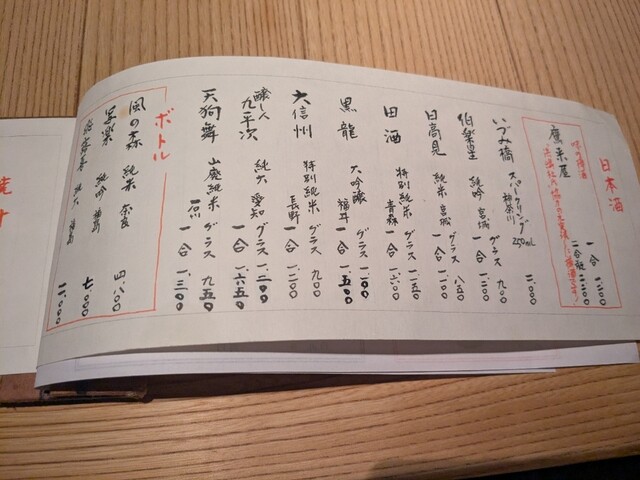 日本酒
鷹来屋
一合 一、二〇〇
二合瓶 二、二〇〇
いづみ橋 スパークリング 神奈川 250mL 二、〇〇〇
伯楽星 純吟 宮城 グラス 九〇〇
一合 一、二〇〇
日高見 純米 宮城 グラス 八五〇
一合 一、一〇〇
田酒 特別純米 青森 グラス 一、一五〇
一合 一、六〇〇
黒龍 大吟醸 福井 グラス 一、一〇〇
一合 一、五〇〇
大信州 特別純米 長野 グラス 九〇〇
一合 一、二〇〇
醸し人九平次 純大 愛知 グラス 一、二〇〇
一合 一、六五〇
天狗舞 山廃純米 石川 グラス 九五〇
一合 一、三〇〇
ボトル
風の森 純米 奈良 四、八〇〇
写楽 純吟 福島 七、〇〇〇
純大 福島 一一、〇〇〇